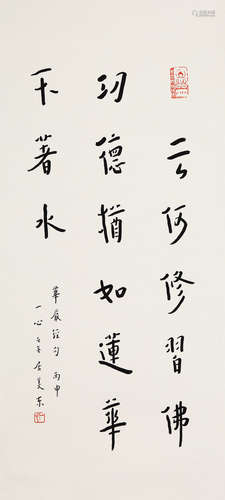 云何修習佛
功德猶如蓮華
不著水
華嚴經句 丙申
一心